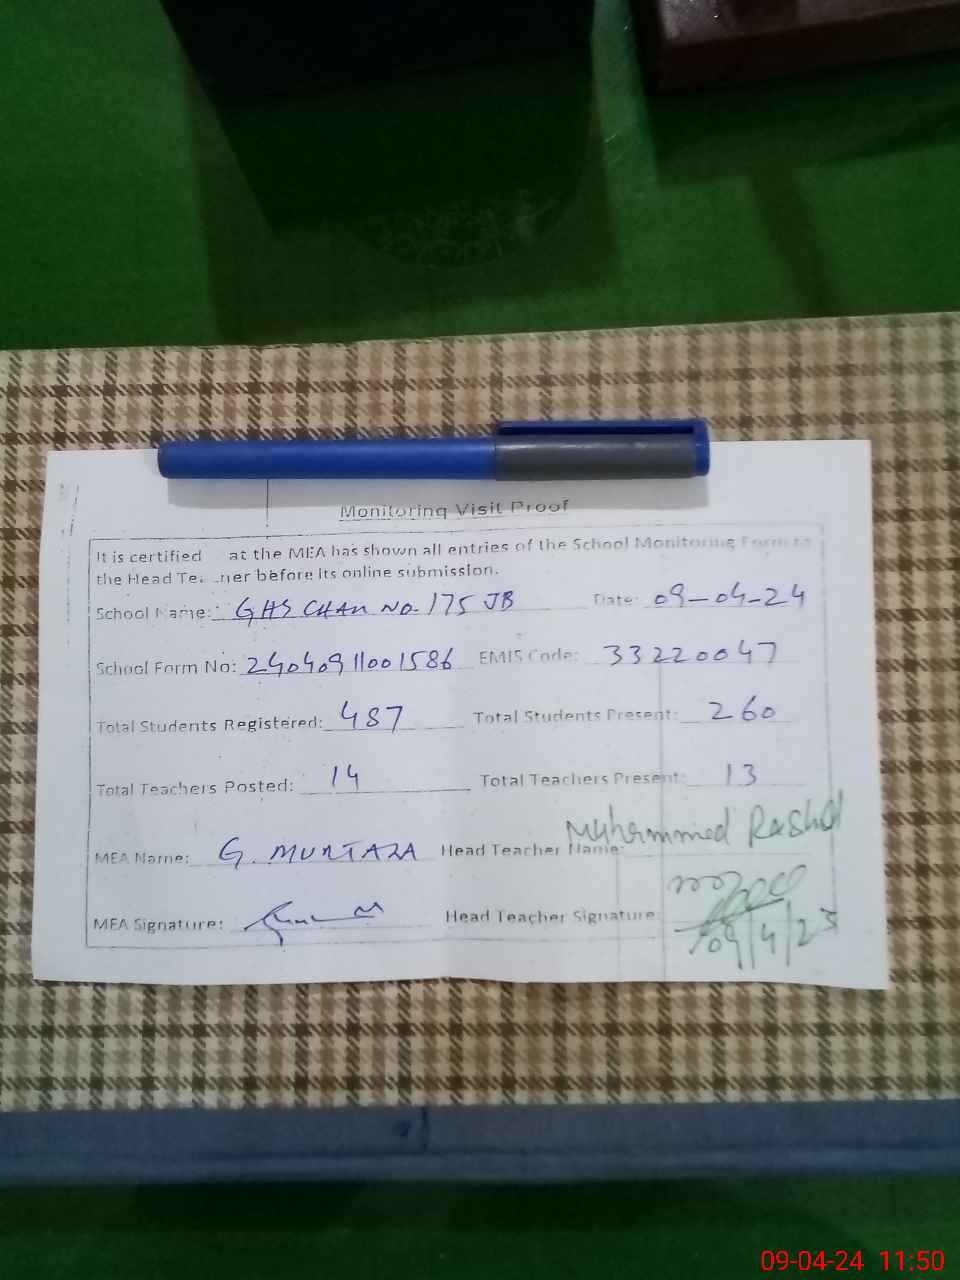 Monitoring Visit Proof
It is certified at the MEA has shown all entries of the School Monitoring Form to
the Head Te ner before its online submission.
School Name: GHS CHAK No. 175 JB Date: 09-04-24
School Form No: 2404091001586 EMIS Code: 33220047
Total Students Registered: 487 Total Students Present: 260
Total Teachers Posted: 14 Total Teachers Present: 13
MEA Name: G. MURTAZA Head Teacher Name: Muhammed Rashid
MEA Signature: Head Teacher Signature
09/4/23
09-04-24 11:50